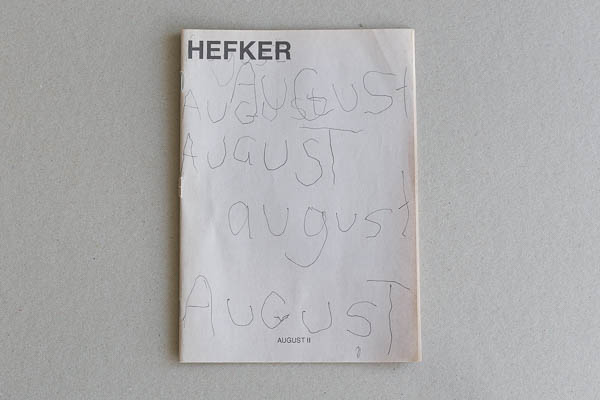 HEFKER
AUGUST
AUGUST
AUGUST
august
AUGUST
AUGUST II